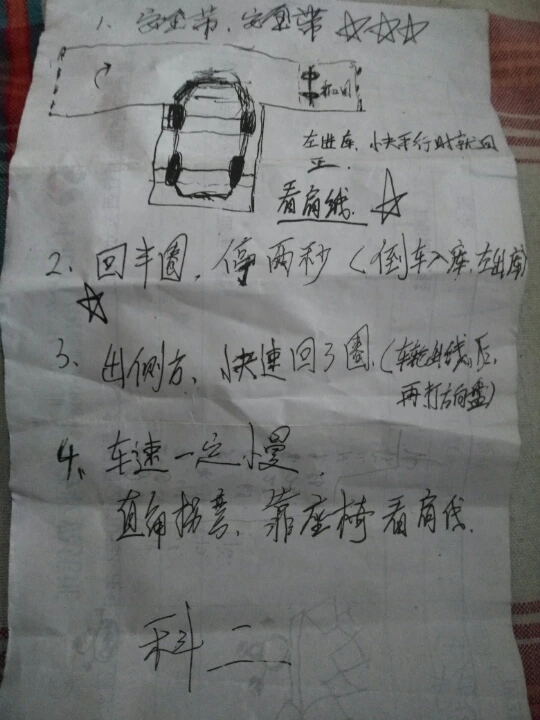 1、安全带、安全带 ☆☆☆
左进库,快平行时就回
正.
看肩线. ☆
2、回半圈,停两秒(倒车入库.左出库)
☆
3、出侧方、快速回3圈.(车轮出线后,
再打方向盘)
4、车速一定慢
直角拐弯、靠座椅看肩线.
科二